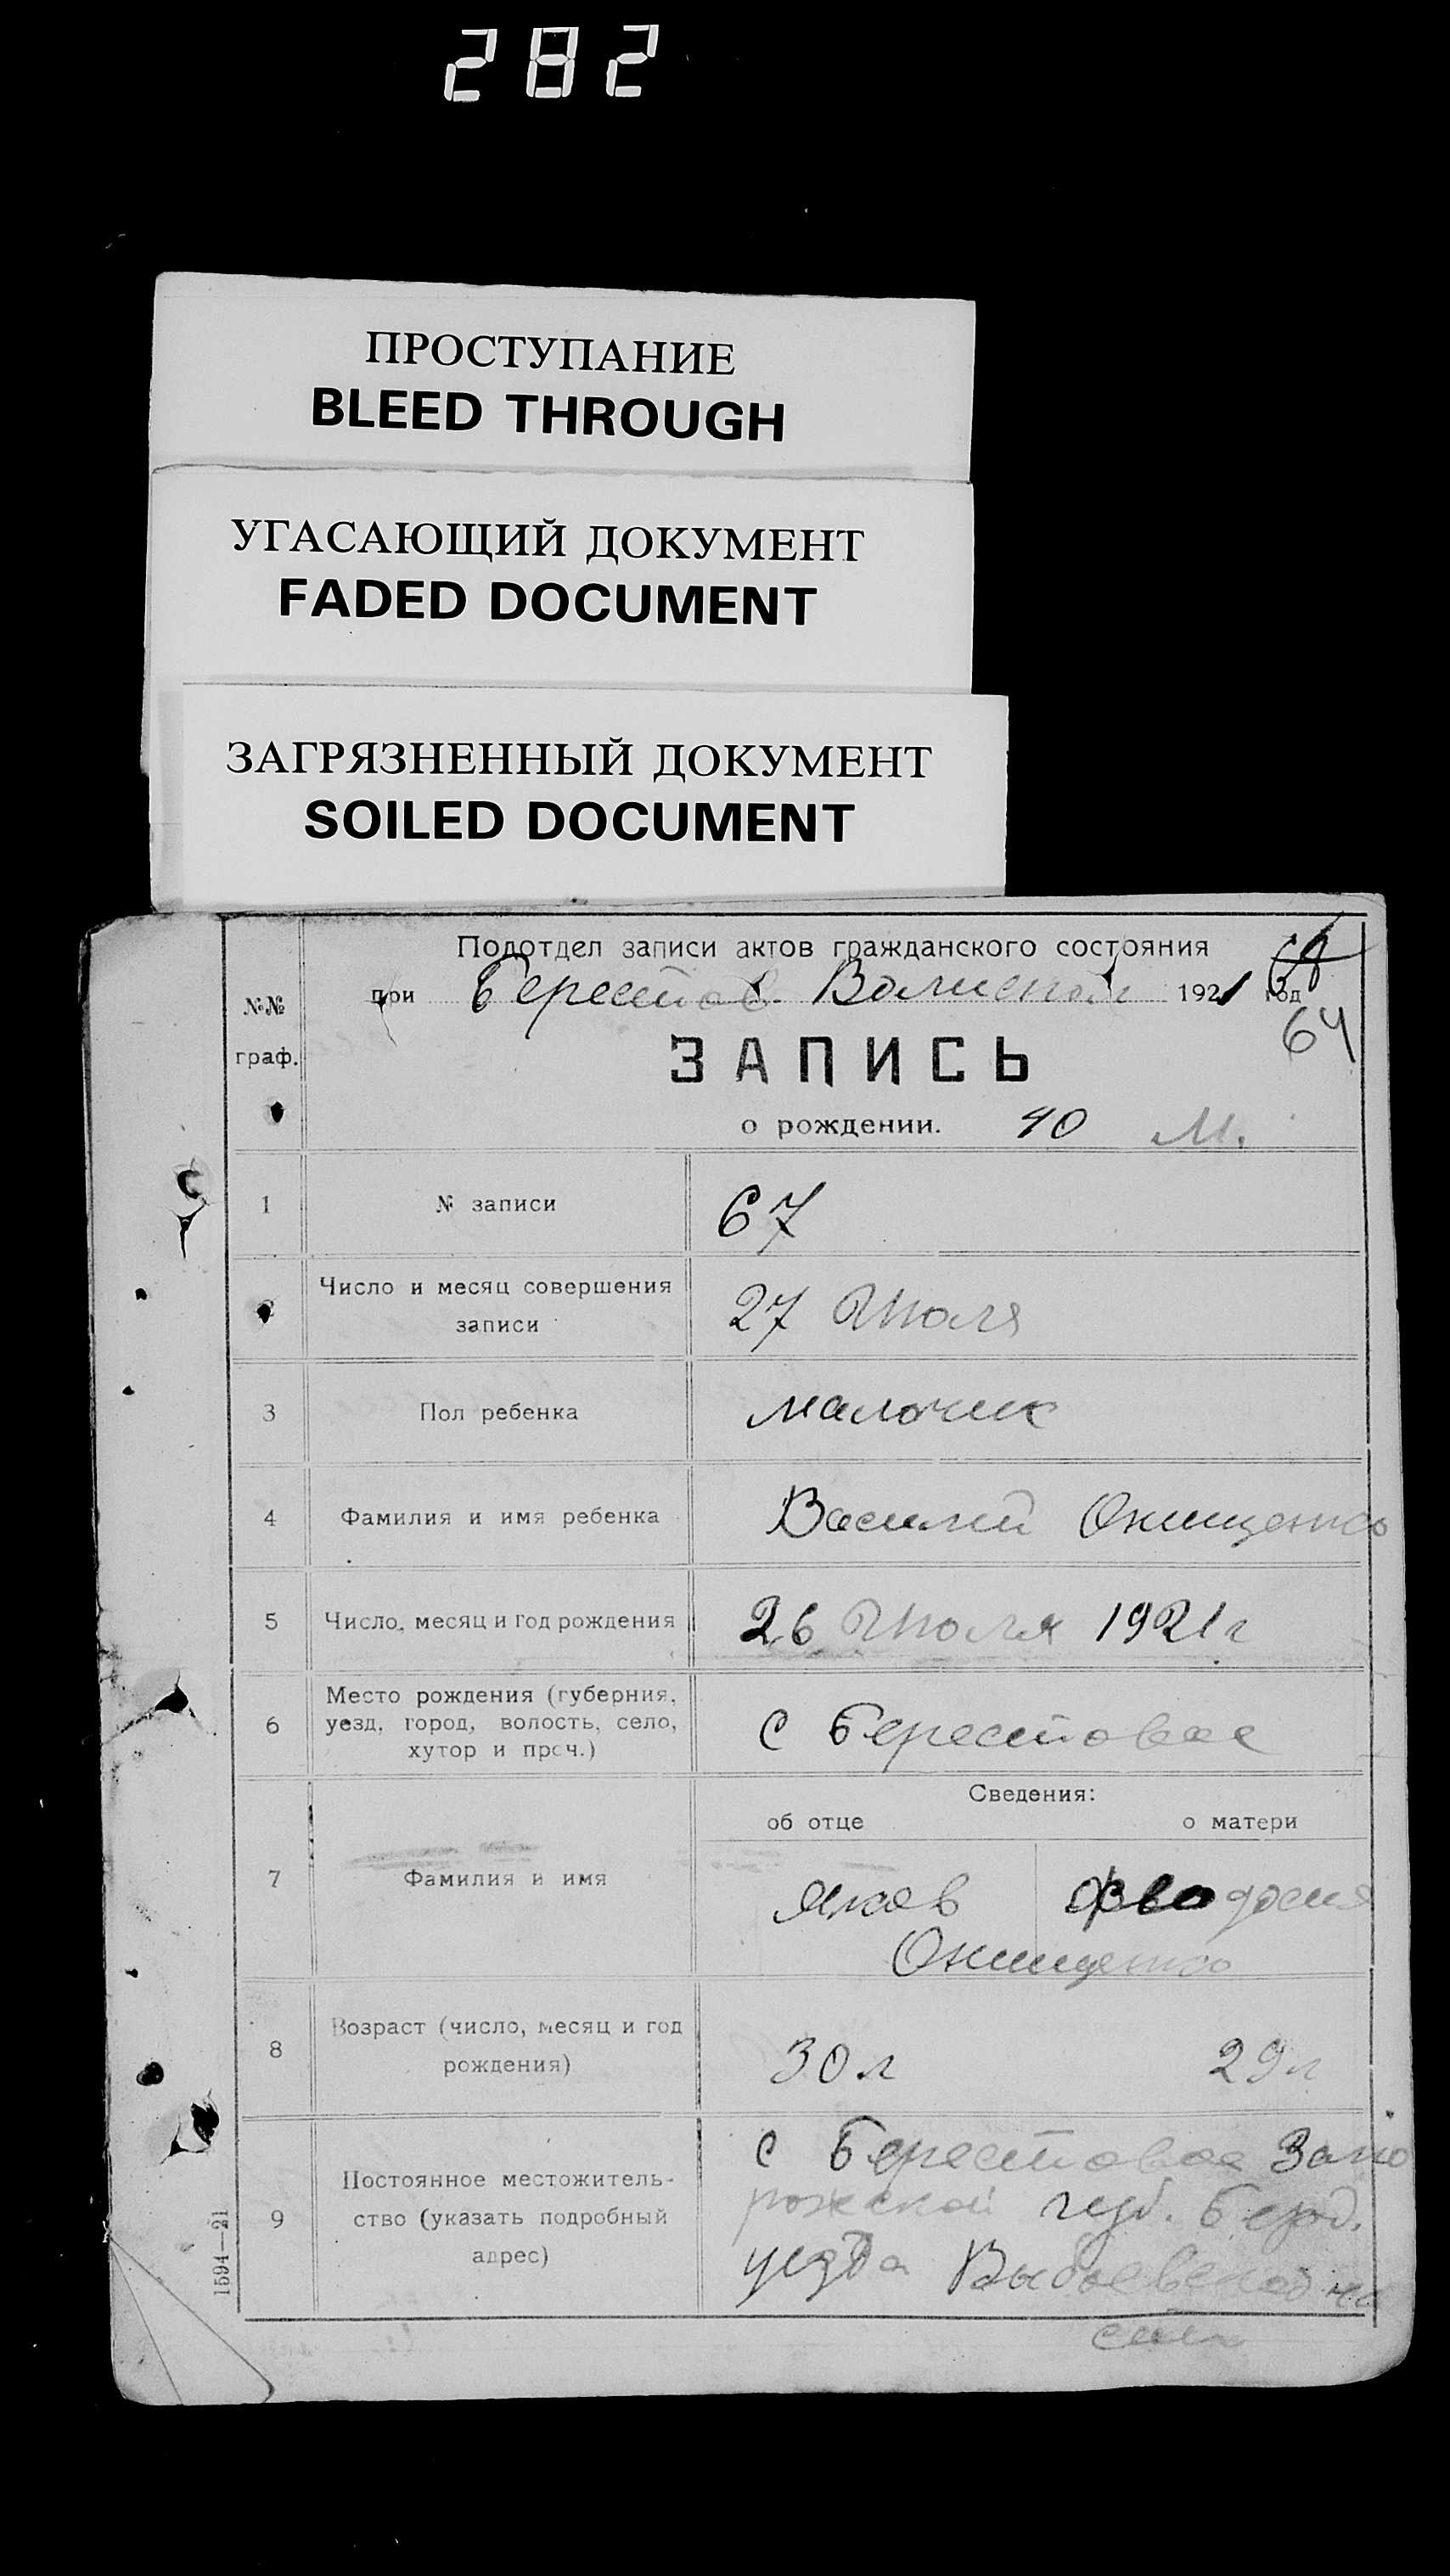 282
ПРОСТУПАНИЕ
BLEED THROUGH
УГАСАЮЩИЙ ДОКУМЕНТ
FADED DOCUMENT
ЗАГРЯЗНЕННЫЙ ДОКУМЕНТ
SOILED DOCUMENT
Подотдел записи актов гражданского состояния
при Берестов. 1921 год
64
№№ граф.
ЗАПИСЬ
о рождении. 40 М.
1 № записи 67
2 Число и месяц совершения
записи 27 Июля
3 Пол ребенка малочик
4 Фамилия и имя ребенка Василий Онищенко
5 Число, месяц и год рождения 26 Июля 1921 г
6 Место рождения (губерния,
уезд, город, волость, село,
хутор и проч.) с Берестовое
Сведения:
об отце о матери
7 Фамилия и имя Яков
Онищенко
8 Возраст (число, месяц и год
рождения) 30 л 29 л
9 Постоянное местожитель-
ство (указать подробный
адрес)
с Берестовое Запо
рожской губ. Берд.
уезда
1594—21